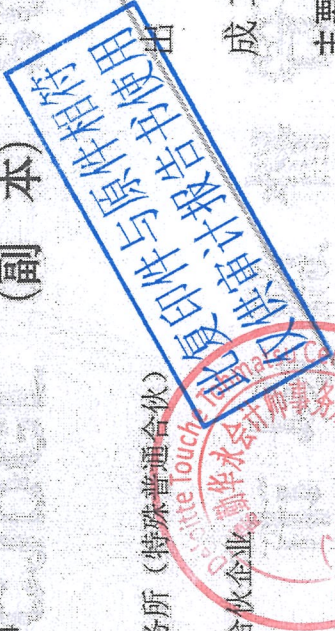 (副 本)
此复印件与原件相符
仅供审计报告书使用
出
成
主要
务所（特殊普通合伙）
合伙企业
Deloitte Touche Tohmatsu Ce
勤华永会计师事务